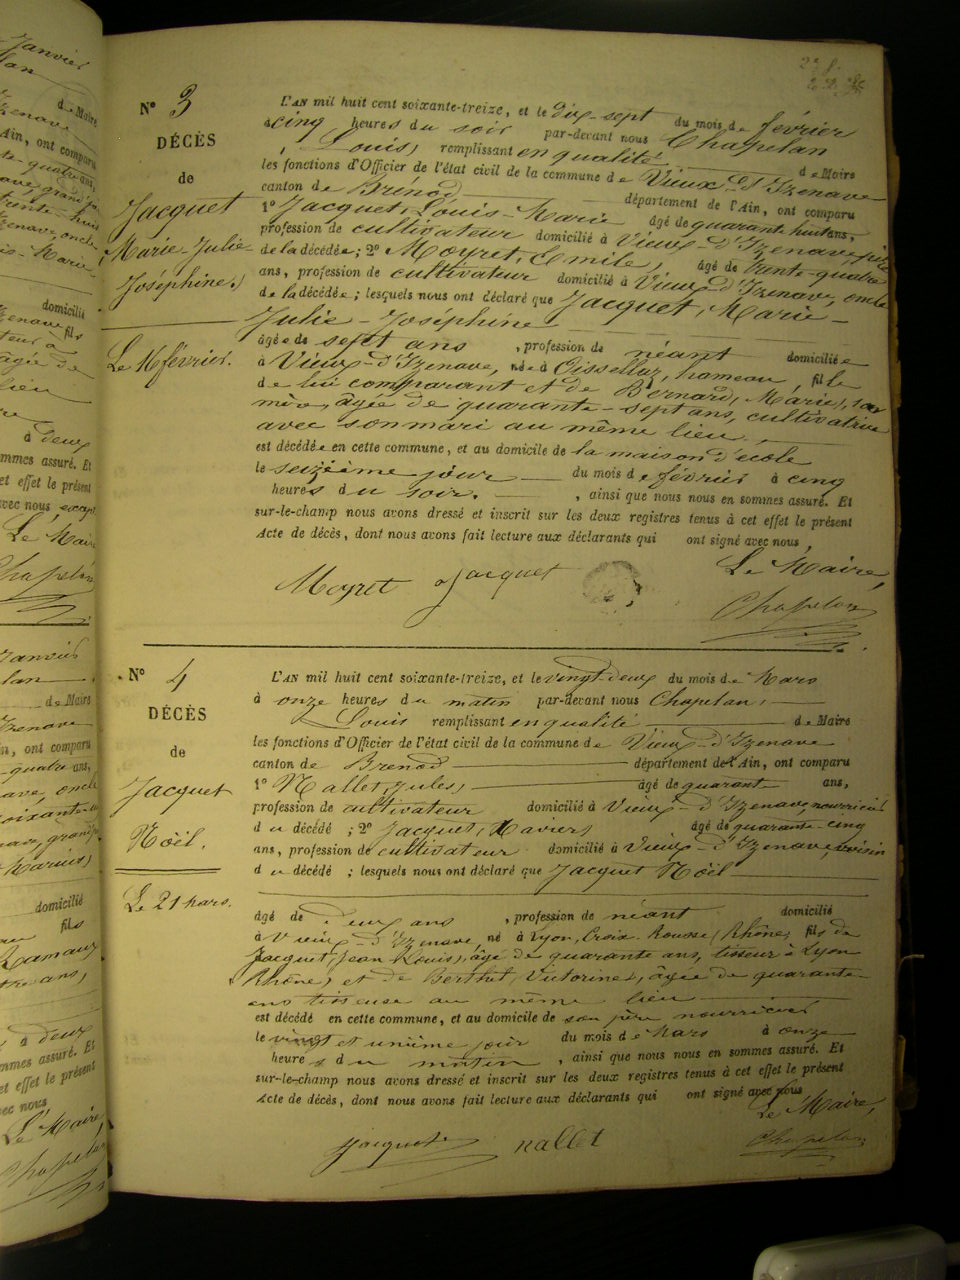 N° 3
DÉCÈS
de
Jacquet
Marie-Julie
Joséphine.
Le 16 février.
L'AN mil huit cent soixante-treize, et le dix-sept du mois de février
à cinq heures du soir par-devant nous Chapelan
Louis, remplissant en qualité de Maire
les fonctions d'Officier de l'état civil de la commune de Vieux-d'Izenave
canton de Brénod département de l'Ain, ont comparu
1° Jacquet, Louis-Marie âgé de quarante huit ans,
profession de cultivateur domicilié à Vieux-d'Izenave, père
de la décédée; 2° Moyret, Emile, âgé de trente-quatre
ans, profession de cultivateur domicilié à Vieux-d'Izenave, oncle
de la décédée; lesquels nous ont déclaré que Jacquet, Marie-
Julie-Joséphine
âgée de sept ans, profession de néant domiciliée
à Vieux-d'Izenave, née à Oisellaz, hameau, fille
de lui comparant et de Bernard, Marie, sa
mère, âgée de quarante-sept ans, cultivatrice
avec son mari au même lieu,
est décédée en cette commune, et au domicile de la maison d'école
le seizième jour du mois de février à cinq
heures du soir, ainsi que nous nous en sommes assuré. Et
sur-le-champ nous avons dressé et inscrit sur les deux registres tenus à cet effet le présent
Acte de décès, dont nous avons fait lecture aux déclarants qui ont signé avec nous,
Le Maire,
Moyret Jacquet Chapelan
N° 4
DÉCÈS
de
Jacquet
Noël.
Le 21 mars.
L'AN mil huit cent soixante-treize, et le vingt-deux du mois de Mars
à onze heures du matin par-devant nous Chapelan,
Louis remplissant en qualité de Maire
les fonctions d'Officier de l'état civil de la commune de Vieux-d'Izenave
canton de Brenod département de l'Ain, ont comparu
1° Nallet, Jules, âgé de quarante ans,
profession de cultivateur domicilié à Vieux-d'Izenave, nourricier
du décédé; 2° Jacquet, Xavier, âgé de quarante-cinq
ans, profession de cultivateur domicilié à Vieux-d'Izenave, voisin
du décédé; lesquels nous ont déclaré que Jacquet Noël
âgé de deux ans, profession de néant domicilié
à Vieux-d'Izenave, né à Lyon, Croix-Rousse, Rhône, fils de
Jacquet, Jean Louis, âgé de quarante ans, tisseur à Lyon
Rhône, et de Berthet, Victorine, âgée de quarante
ans tisseuse au même lieu
est décédé en cette commune, et au domicile de son père nourricier
le vingt et unième jour du mois de Mars à onze
heures du matin, ainsi que nous nous en sommes assuré. Et
sur-le-champ nous avons dressé et inscrit sur les deux registres tenus à cet effet le présent
Acte de décès, dont nous avons fait lecture aux déclarants qui ont signé avec nous
Le Maire,
Jacquet nallet Chapelan